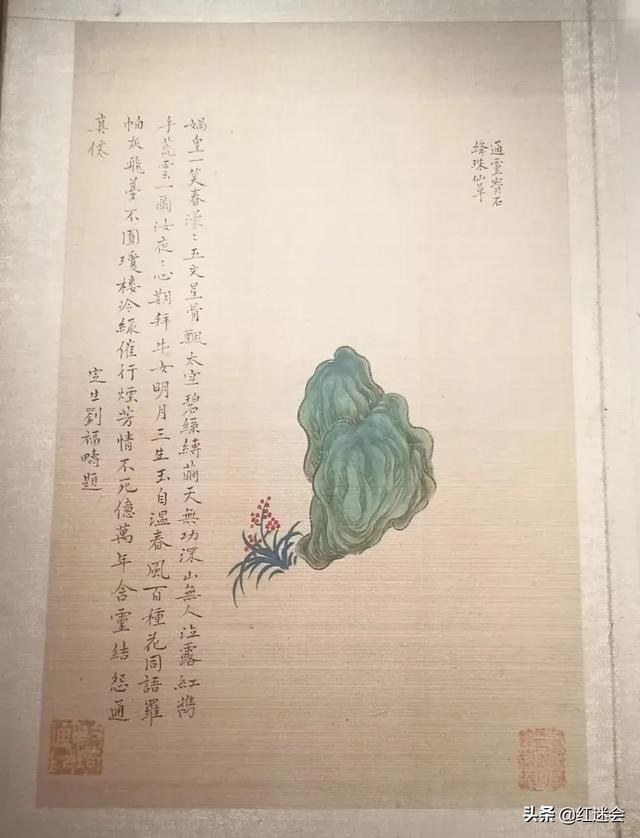 通靈寳石
絳珠仙草
媧皇一笑春濛〻五文星骨飄太空碧縛繭天無功深山無人泣露紅攜
手荒雲一爾汝夜〻心期拜牛女明月三生玉自溫春風百種花同語羅
帕灰飛夢不圓瓊樓冷綠催行煙芳情不死億萬年含靈結怨通
真僊
定生劉福疇題
头条@红迷会